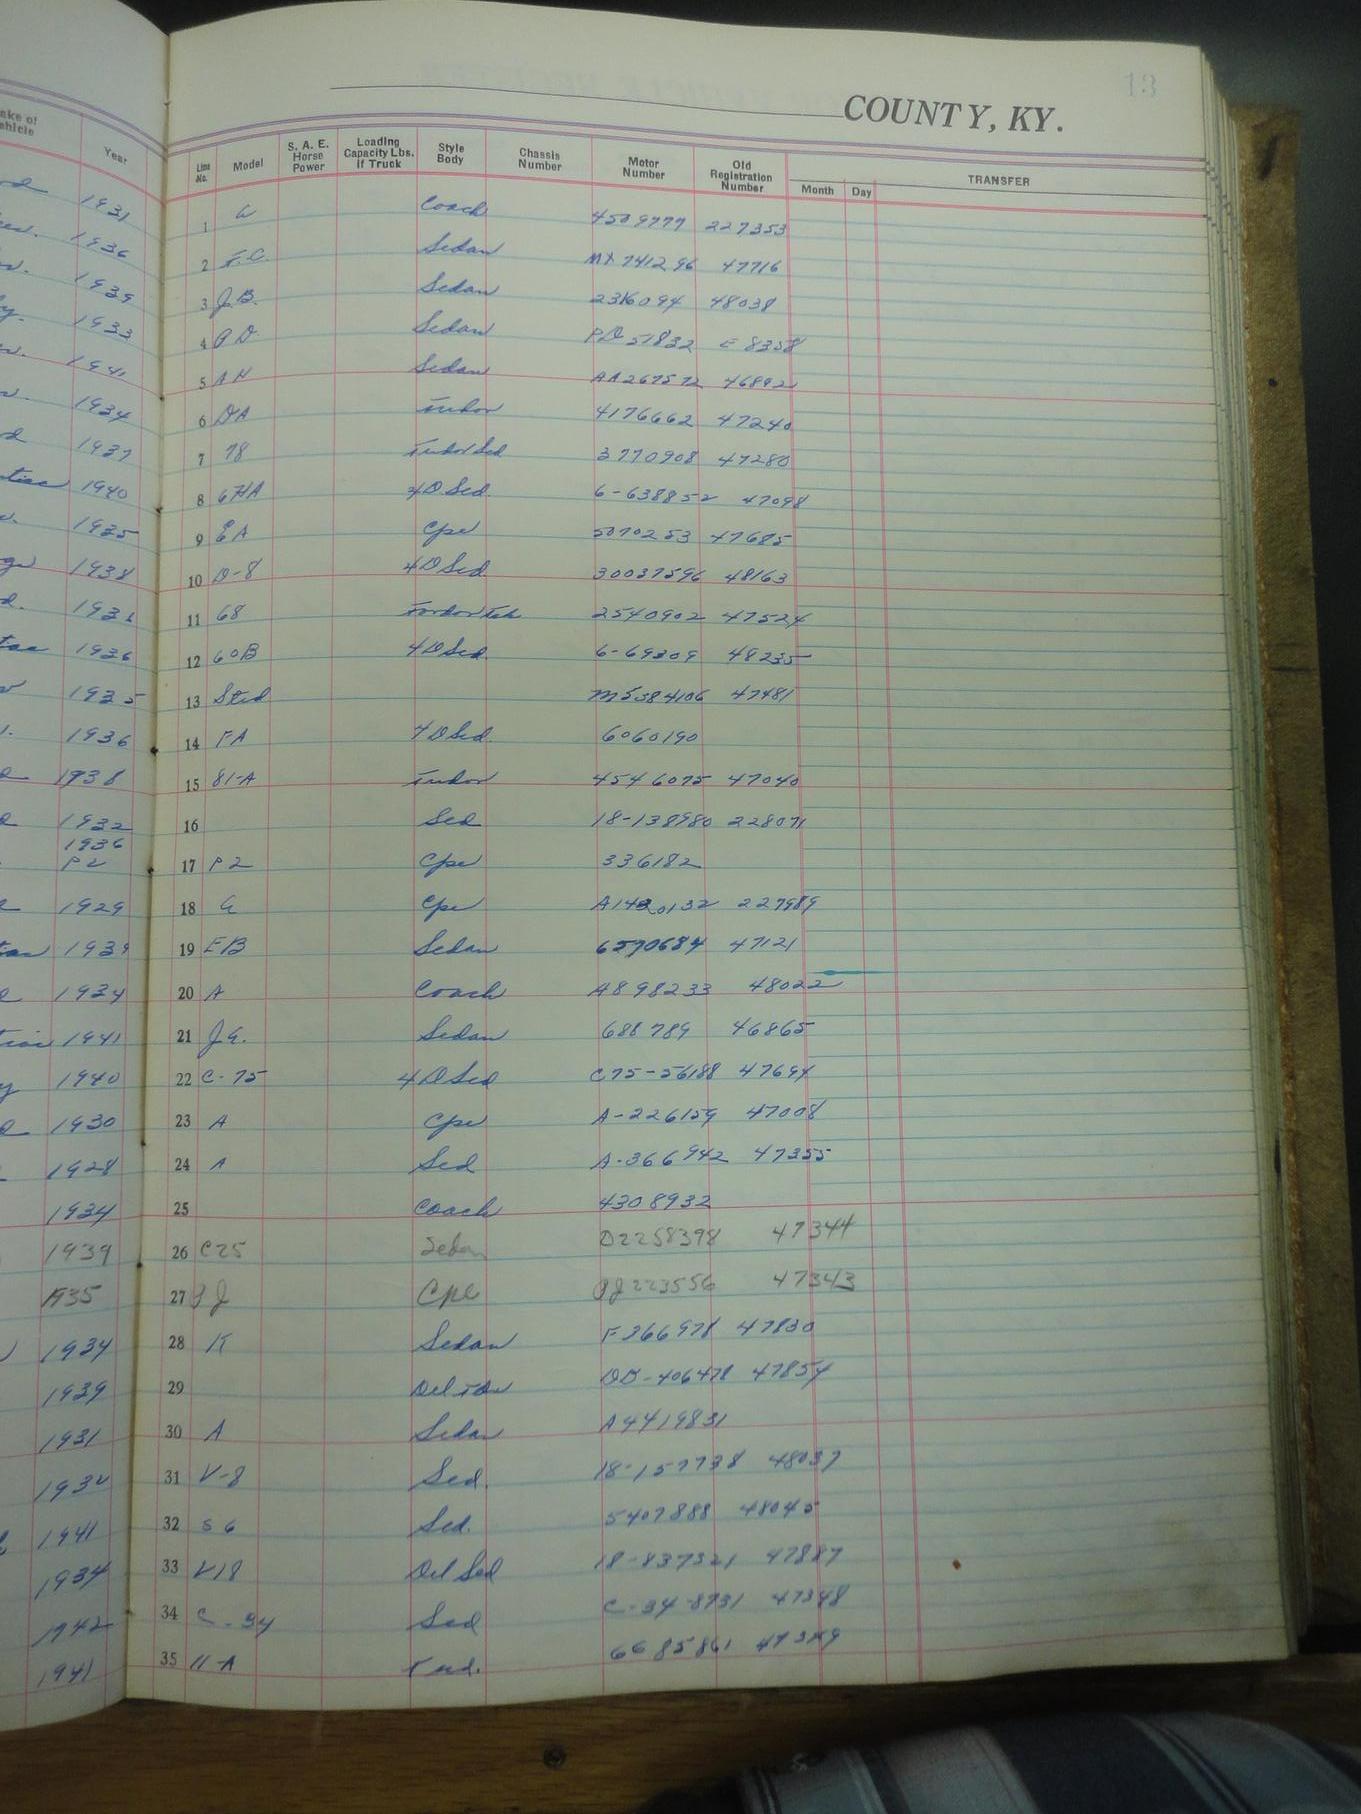 13
COUNTY, KY.
Make of Vehicle Year Line No. Model S. A. E. Horse Power Loading Capacity Lbs. if Truck Style Body Chassis Number Motor Number Old Registration Number TRANSFER Month Day
1931 1 Coach 4509777 227353
1936 2 F.C. Sedan 47716
1939 3 J.B. Sedan 48038
1933 4 Sedan PD 51832 E 8358
1941 5 AH Sedan AA267572 46892
1934 6 DA Tudor 4176662 47240
1937 7 78 Tudor Sed 3770908 47280
1940 8 6HA 4D Sed. 6-638852 47098
1935 9 EA Cpe 5070253 47685
1938 10 D-8 4D Sed 30037596 48163
11 68 2540902 47524
1936 12 60B 4D Sed. 6-69309 48235
1935 13 Std M5384106 47481
1936 14 FA 4D Sed. 6060190
1938 15 81-A Tudor 4546075 47040
1932 16 Sed 18-138980 228071
1936
P2 17 P2 Cpe 336182
1929 18 Cpe 227989
1939 19 EB Sedan 6570684 47121
1934 20 A Coach A898233 48022
1941 21 Sedan 688789 46865
1940 22 C-75 4D Sed C75-56188 47694
1930 23 A Cpe A-226159 47008
1928 24 A Sed A-366942 47355
1934 25 Coach 4308932
1939 26 C25 Sedan D2258398 47344
1935 27 Cpe 47343
1934 28 K Sedan 47830
1939 29 DD-406478 47854
1931 30 A Sedan A4419831
1932 31 V-8 Sed. 18-157738 48037
1941 32 S6 Sed. 5407888 48045
1934 33 V18 Del Sed 18-837321 47887
1942 34 C-34 Sed C-34-8731 47348
1941 35 11-A Tud. 6685861